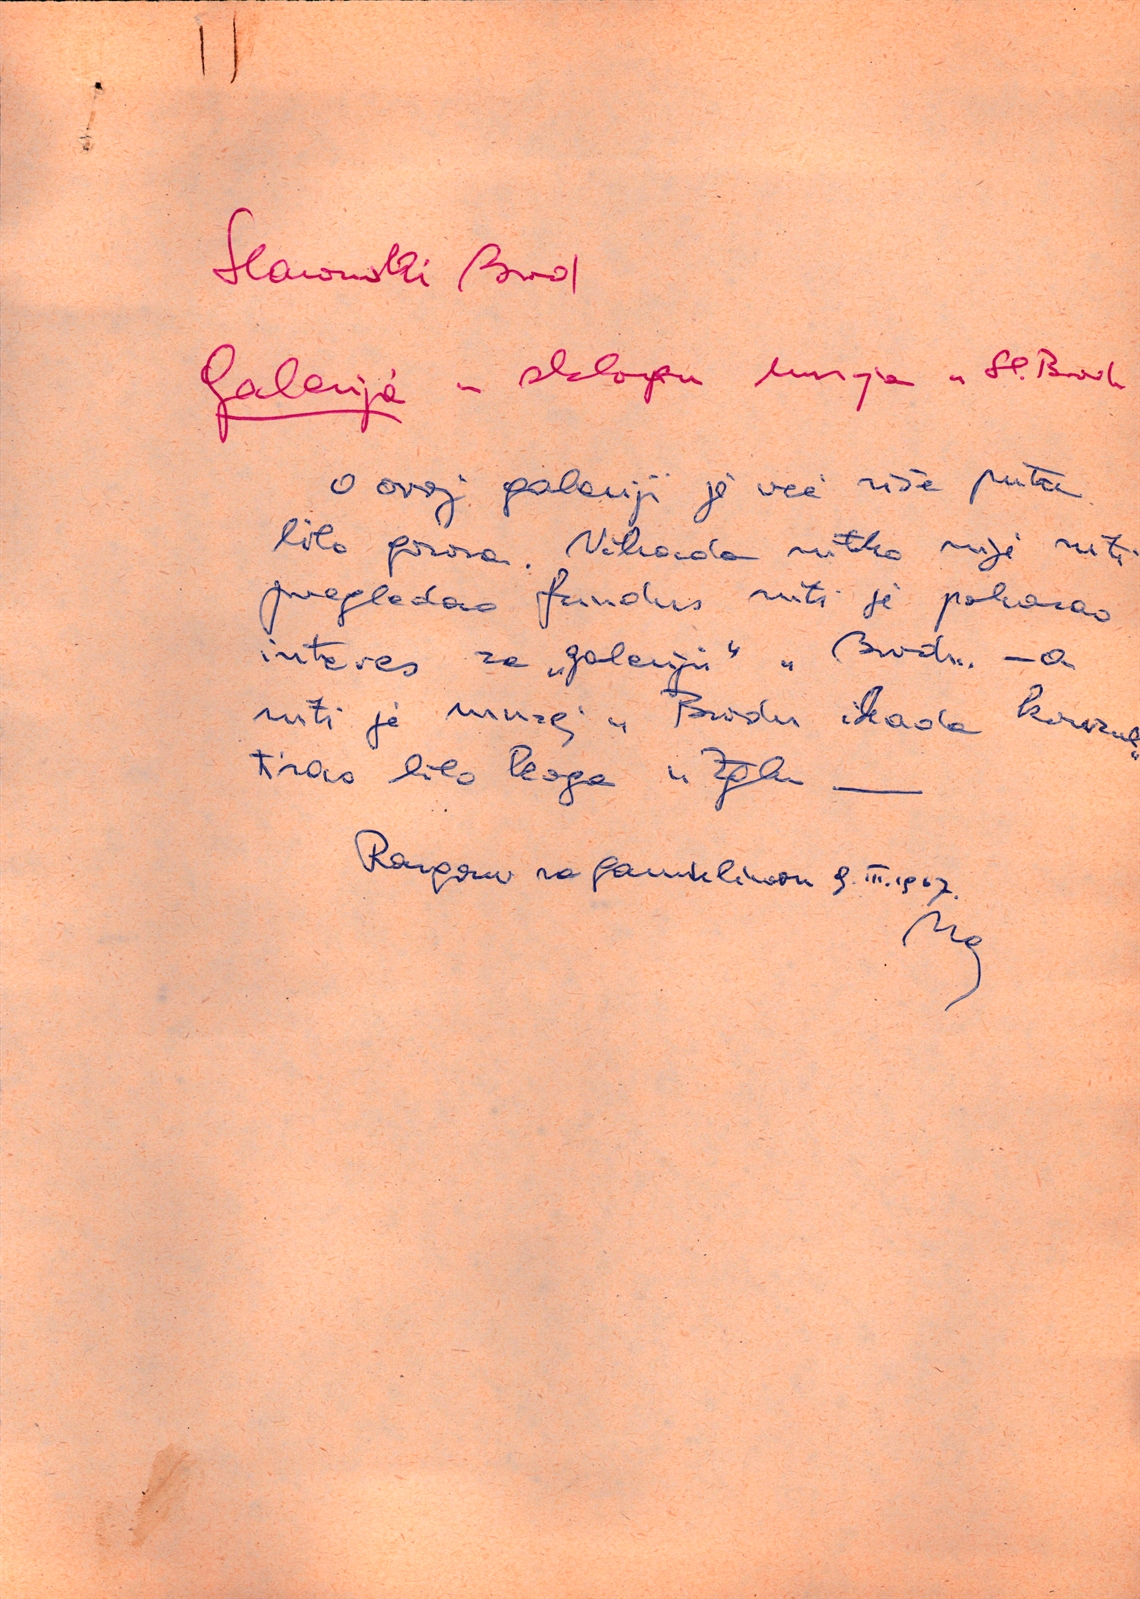 Slavonski Brod
Galerija u sklopu muzeja u Sl. Brodu
O ovoj galeriji je već više puta
bilo govora. Nikada nitko nije niti
pregledao fundus niti je pokazao
interes za „galeriju“ u Brodu. — a
niti je muzej u Brodu ikada konzul„
tirao bilo koga u Zgbu —
Razgovor sa 9. III. 1967.